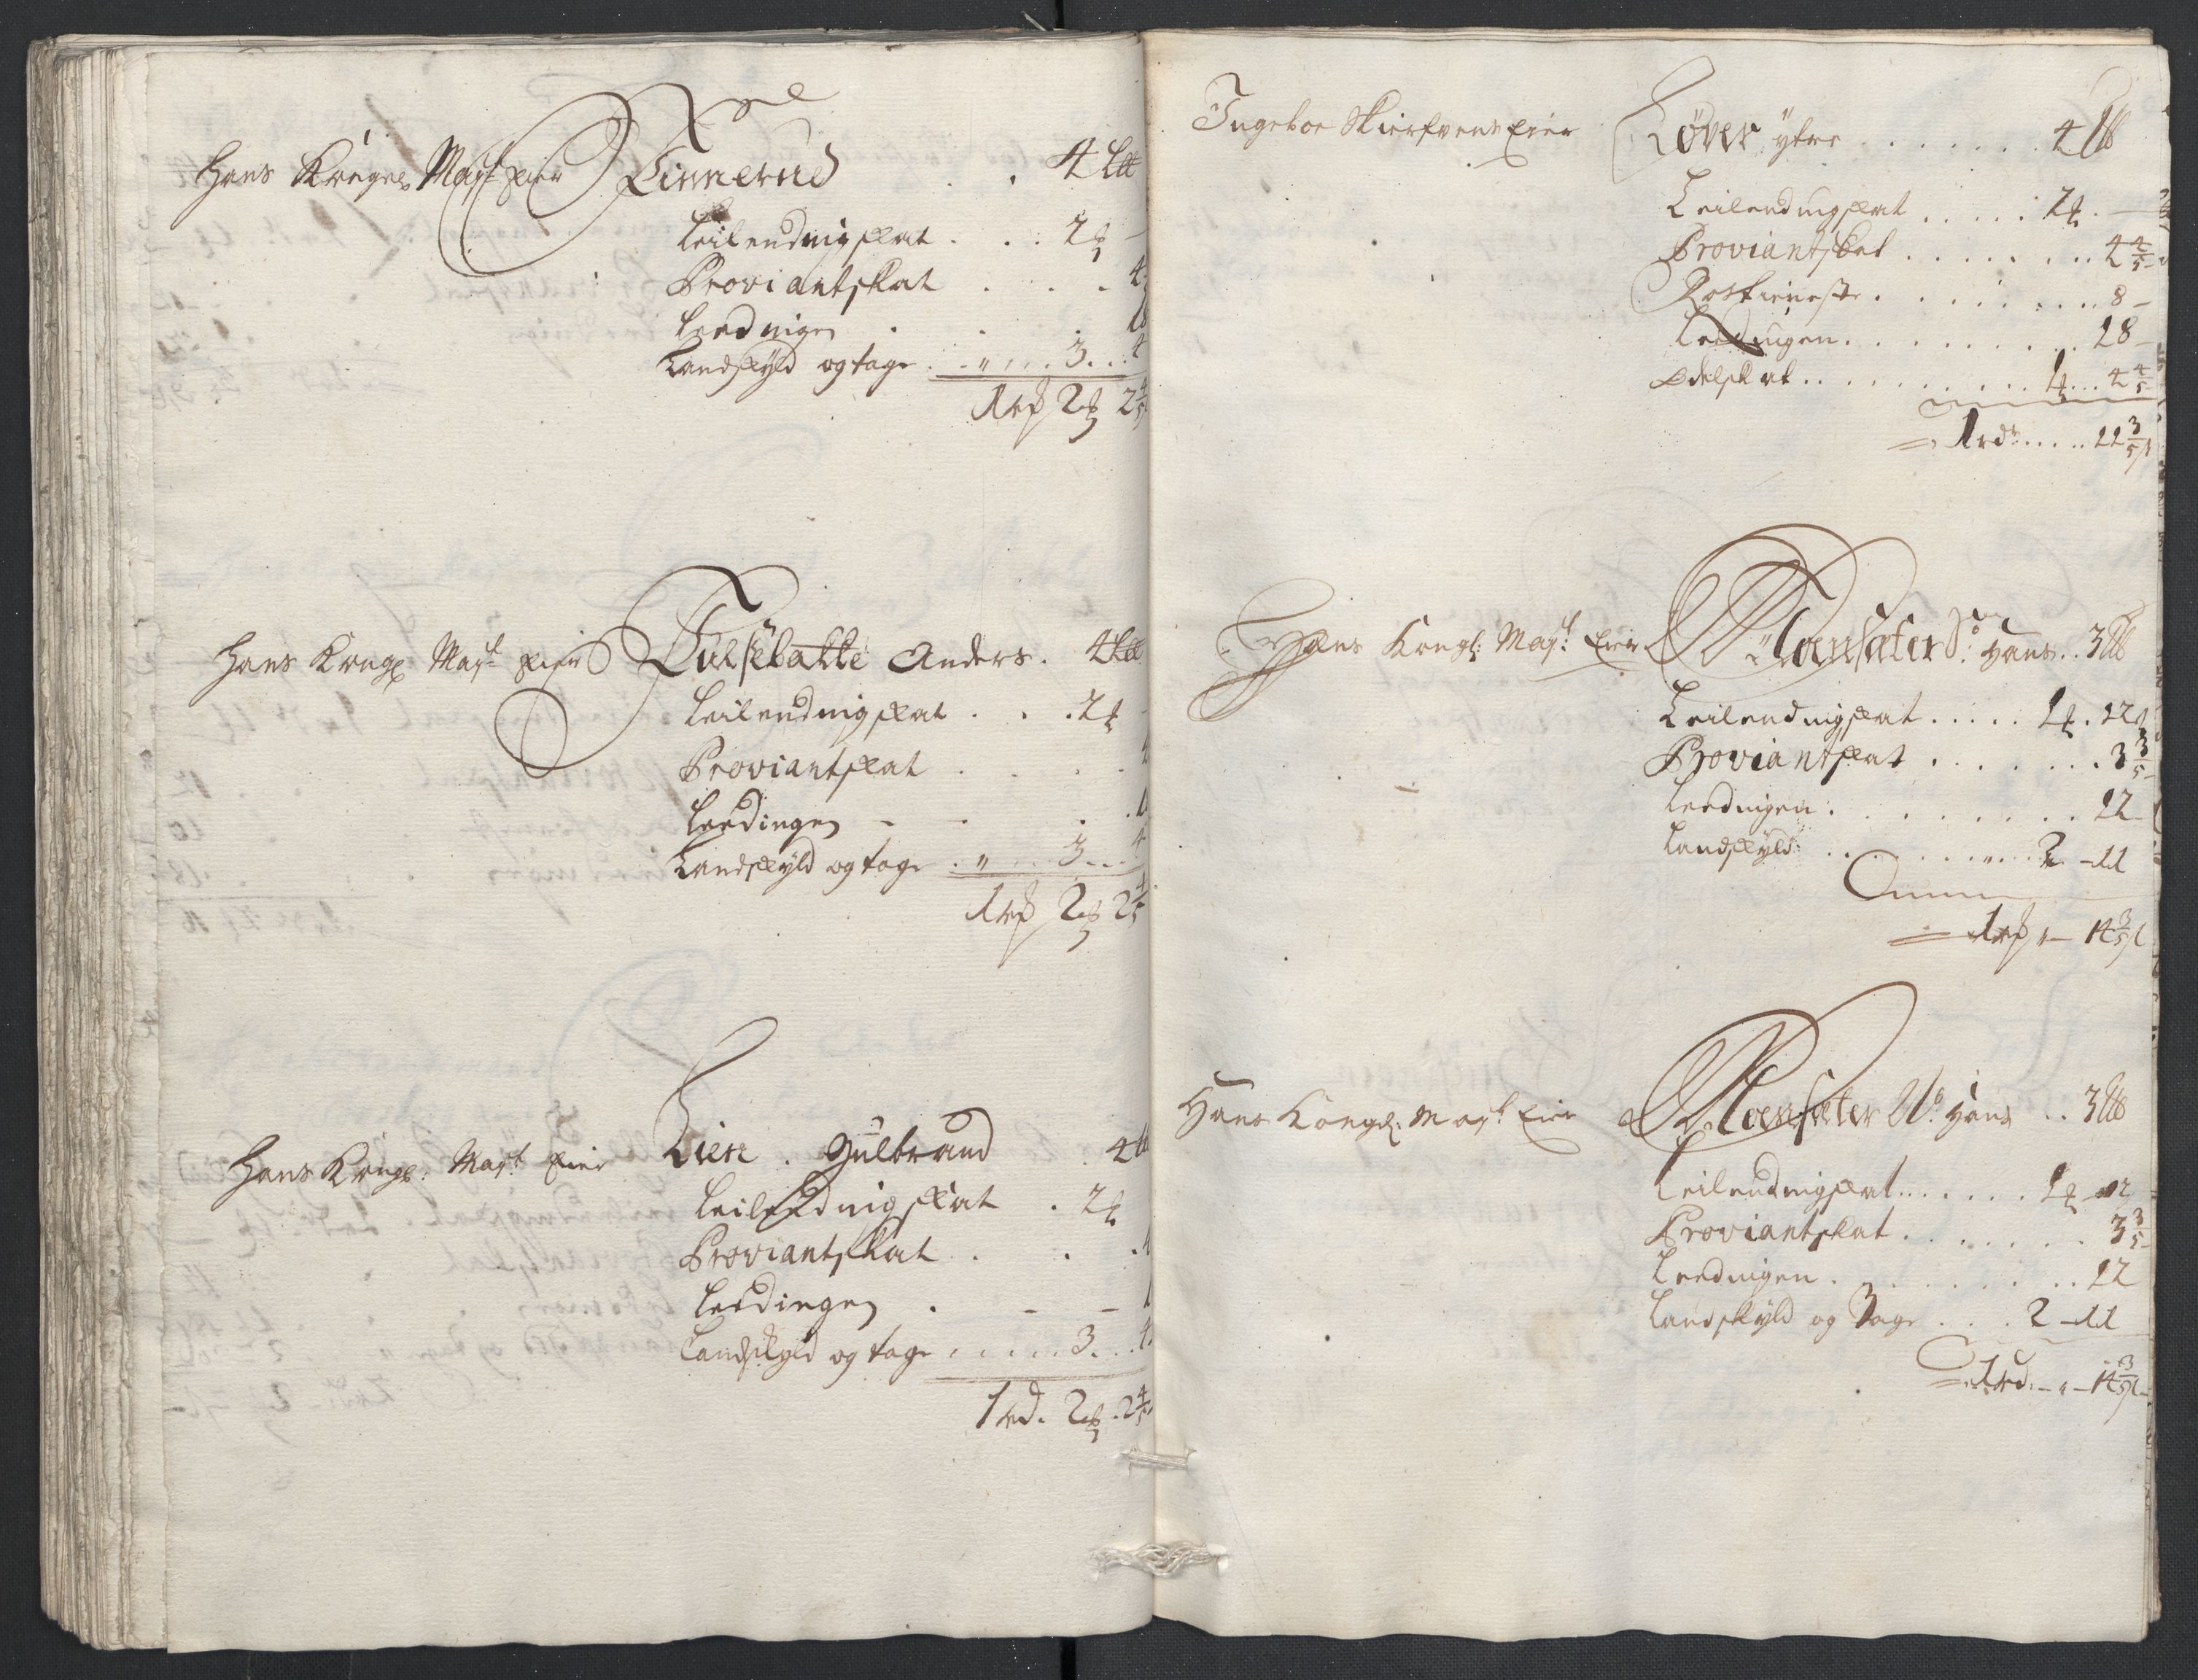 Hans Kongel Mayt Eier Finnerud . . 4 Lb
Leilendingskat . . . 2 ort -
Proviantskat . . . 4
Leedingen . . . 18
Landskyld og tage . . " . . . 3 . . . 4
1 rd 2 ort 2 4/5
Hans Kongl Mayt Eier Fulsebakke Anders . 4 Lb
Leilendingskat . . . 2 ort
Proviantskat . . . . 4
Leedingen - - . 1
Landskyld og tage . " . . . 3 . . . 4
1 rd 2 ort 2 4/5
Hans Kongl: Mayt Eier Liere . Gulbrand . 4 Lb
Leilendingskat . 2 ort
Proviantskat . . . 4
Leedingen . - - 1
Landskyld og tage . . . . . 3 . . . 4
1 rd . 2 ort . 2 4/5
Ingeboe Skierfvens Eier Røver ytre . . . . . . . 4 Lb
Leilendingskat . . . . . 2 ort . -
Proviantskat . . . . . . . 4 4/5 -
Rostieneste . . . . . . . . 8 -
Leedingen . . . . . . . . 18 -
Odelskat . . . . . . . . . . 1 ort . . . 4 4/5
= 1 rd . . . . . 11 3/5 s
Hans Kongl: Mayt: Eier Moensæter Sø: Hans . . 3 Lb
Leilendingskat . . . . . 1 ort . 12
Proviantskat . . . . . . . 3 3/5 -
Leedingen . . . . . . . . . 12 -
Landskyld: . . . . . . 2 - 11
= 1 rd " - 14 3/5 s
Hans Kongel: Mayt Eier Moensæter Nø Hans . . 3 Lb
Leilendingskat . . . . . . 1 ort - 12
Proviantskat . . . . . . . 3 3/5 -
Leedingen . . . . . . . . 12
Landskyld og Tage . . . 2 - 11
= 1 rd . - " - 14 3/5 s -